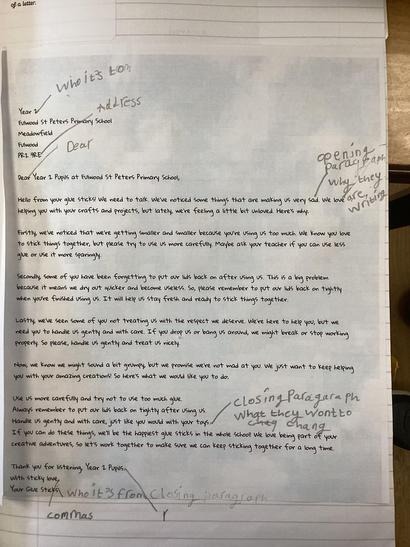 of a letter.
who it's to
Year 2
Address
Fulwood St Peters Primary School
Meadowfield
Fulwood
PR2 9RE
Dear
opening
paragraph
why they
are
writing
Dear Year 1 Pupils at Fulwood St Peters Primary School,
Hello from your glue sticks! We need to talk. We've noticed some things that are making us very sad. We love
helping you with your crafts and projects, but lately, we're feeling a little bit unloved. Here's why.
Firstly, we've noticed that we're getting smaller and smaller because you're using us too much. We know you love
to stick things together, but please try to use us more carefully. Maybe ask your teacher if you can use less
glue or use it more sparingly.
Secondly, some of you have been forgetting to put our lids back on after using us. This is a big problem
because it means we dry out quicker and become useless. So, please remember to put our lids back on tightly
when you're finished using us. It will help us stay fresh and ready to stick things together.
Lastly, we've seen some of you not treating us with the respect we deserve. We're here to help you, but we
need you to handle us gently and with care. If you drop us or bang us around, we might break or stop working
properly. So please, handle us gently and treat us nicely.
Now, we know we might sound a bit grumpy, but we promise we're not mad at you. We just want to keep helping
you with your amazing creations! So here's what we would like you to do.
Use us more carefully and try not to use too much glue.
Always remember to put our lids back on tightly after using us.
Handle us gently and with care, just like you would with your toys.
If you can do these things, we'll be the happiest glue sticks in the whole school! We love being part of your
creative adventures, so let's work together to make sure we can keep sticking together for a long time.
closing Paragaraph
what they wont to
chang
Thank you for listening, Year 1 Pupils.
With sticky love,
Your Glue Sticks
who it's from closing paragraph
commas